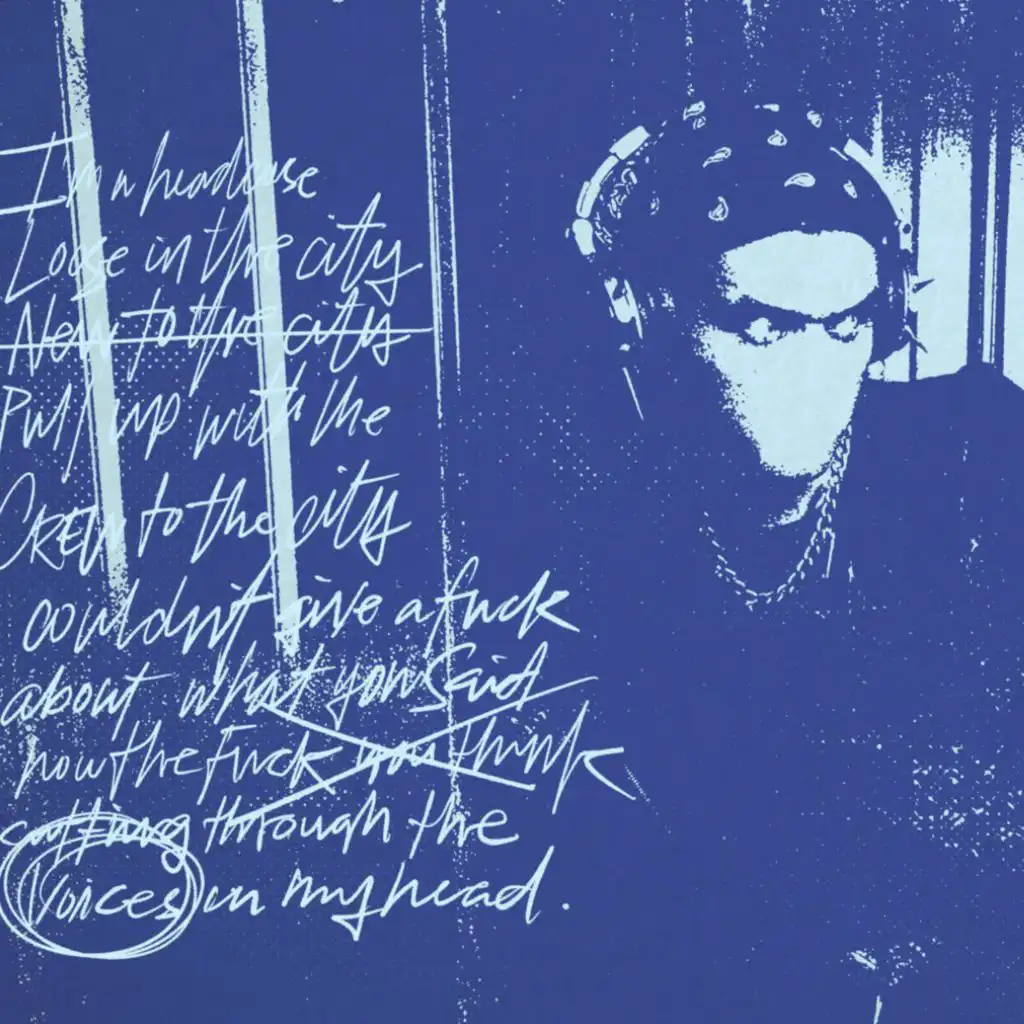 I'm a headcase
Loose in the city
New to the city
Pull up with the
CREW to the city
couldn't give a fuck
about what you said
how the Fuck you think
cutting through the
Voices in my head.